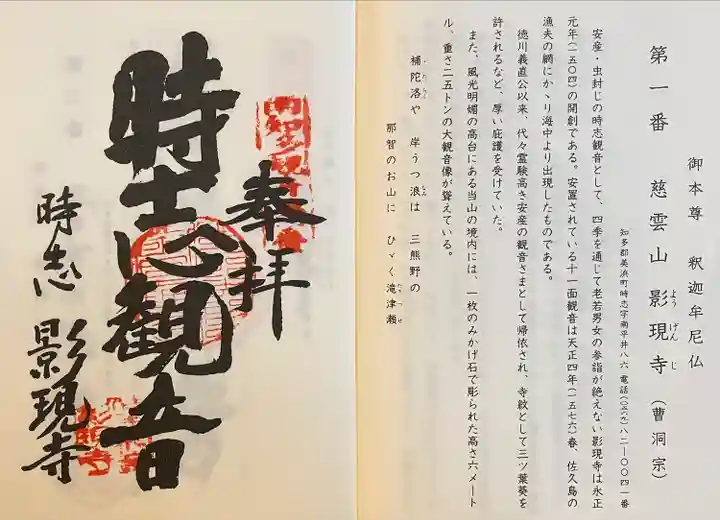 御本尊 釈迦牟尼仏
第一番 慈雲山影現寺(曹洞宗)
ようげんじ
知多郡美浜町時志字南平井八六 電話(〇五六九)八二―〇〇四一番
安産・虫封じの時志観音として、四季を通じて老若男女の参詣が絶えない影現寺は永正
元年(一五〇四)の開創である。安置されている十一面観音は天正四年(一五七六)春、佐久島の
漁夫の網にかゝり海中より出現したものである。
徳川義直公以来、代々霊験高き安産の観音さまとして帰依され、寺紋として三ツ葉葵を
許されるなど、厚い庇護を受けていた。
また、風光明媚の高台にある当山の境内には、一枚のみかげ石で彫られた高さ六メート
ル、重さ二五トンの大観音像が聳えている。
補陀洛や 岸うつ浪は 三熊野の
那智のお山に ひゞく滝津瀬
奉拝
時志観音
時志 影現寺